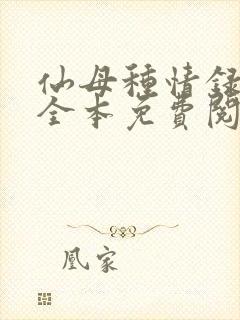 仙母種情録
全本免費閱
凰家